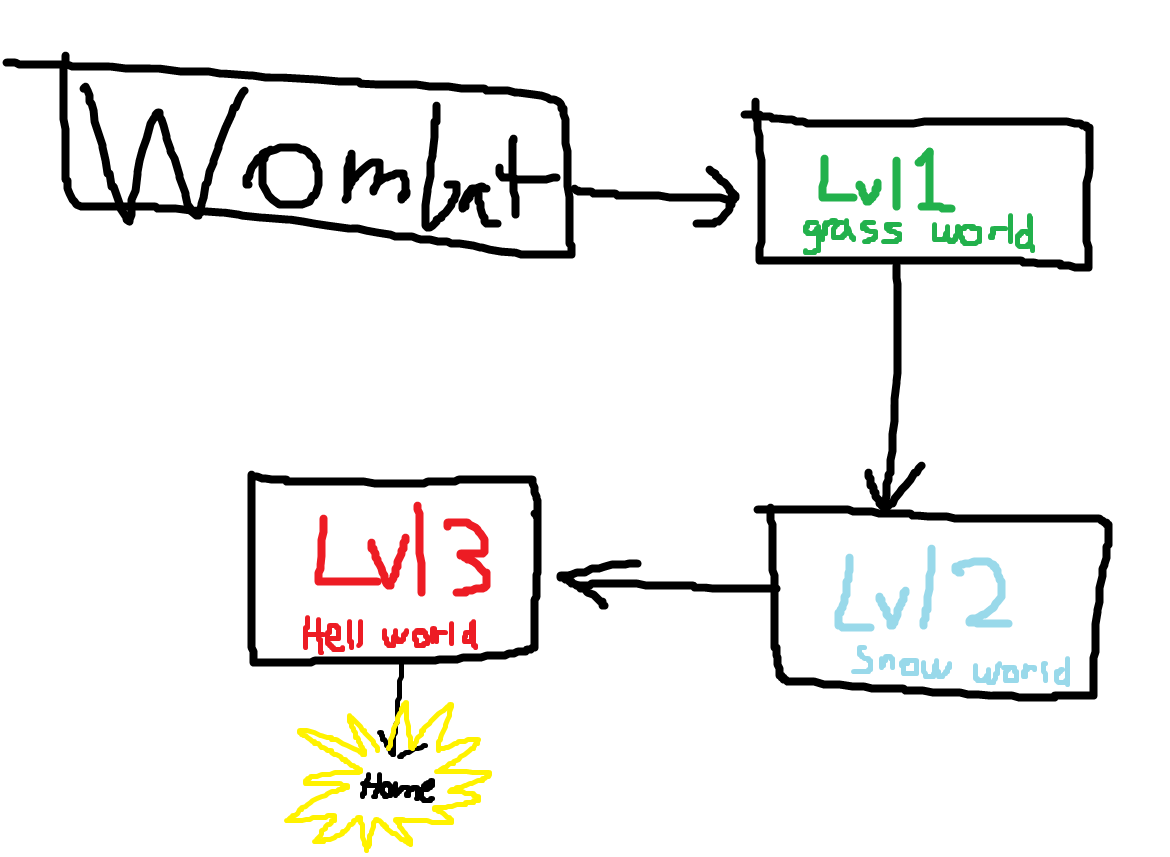 Wombat
Lvl 1
grass world
Lvl 2
Snow world
Lvl 3
Hell world
Home